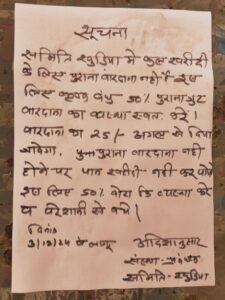 सूचना
समिति खुडिया मे कुल खरीदी
के लिए पुराना बारदाना नही है। इस
लिए कृषक बंधु 50% पुराना जुट
बारदाना का व्यवस्था स्वतः करे।
बारदाना का 25/- अलग से दिया
जावेगा। पुराना बारदाना नही
होने पर धान खरीदी नही कर पायेंगे
इस लिए 50% बोरा कि व्यवस्था करे
व परेशानी से बचे।
दिनांक
3/12/24 से लागू
आदेशानुसार
संस्था
समिति - खुडिया